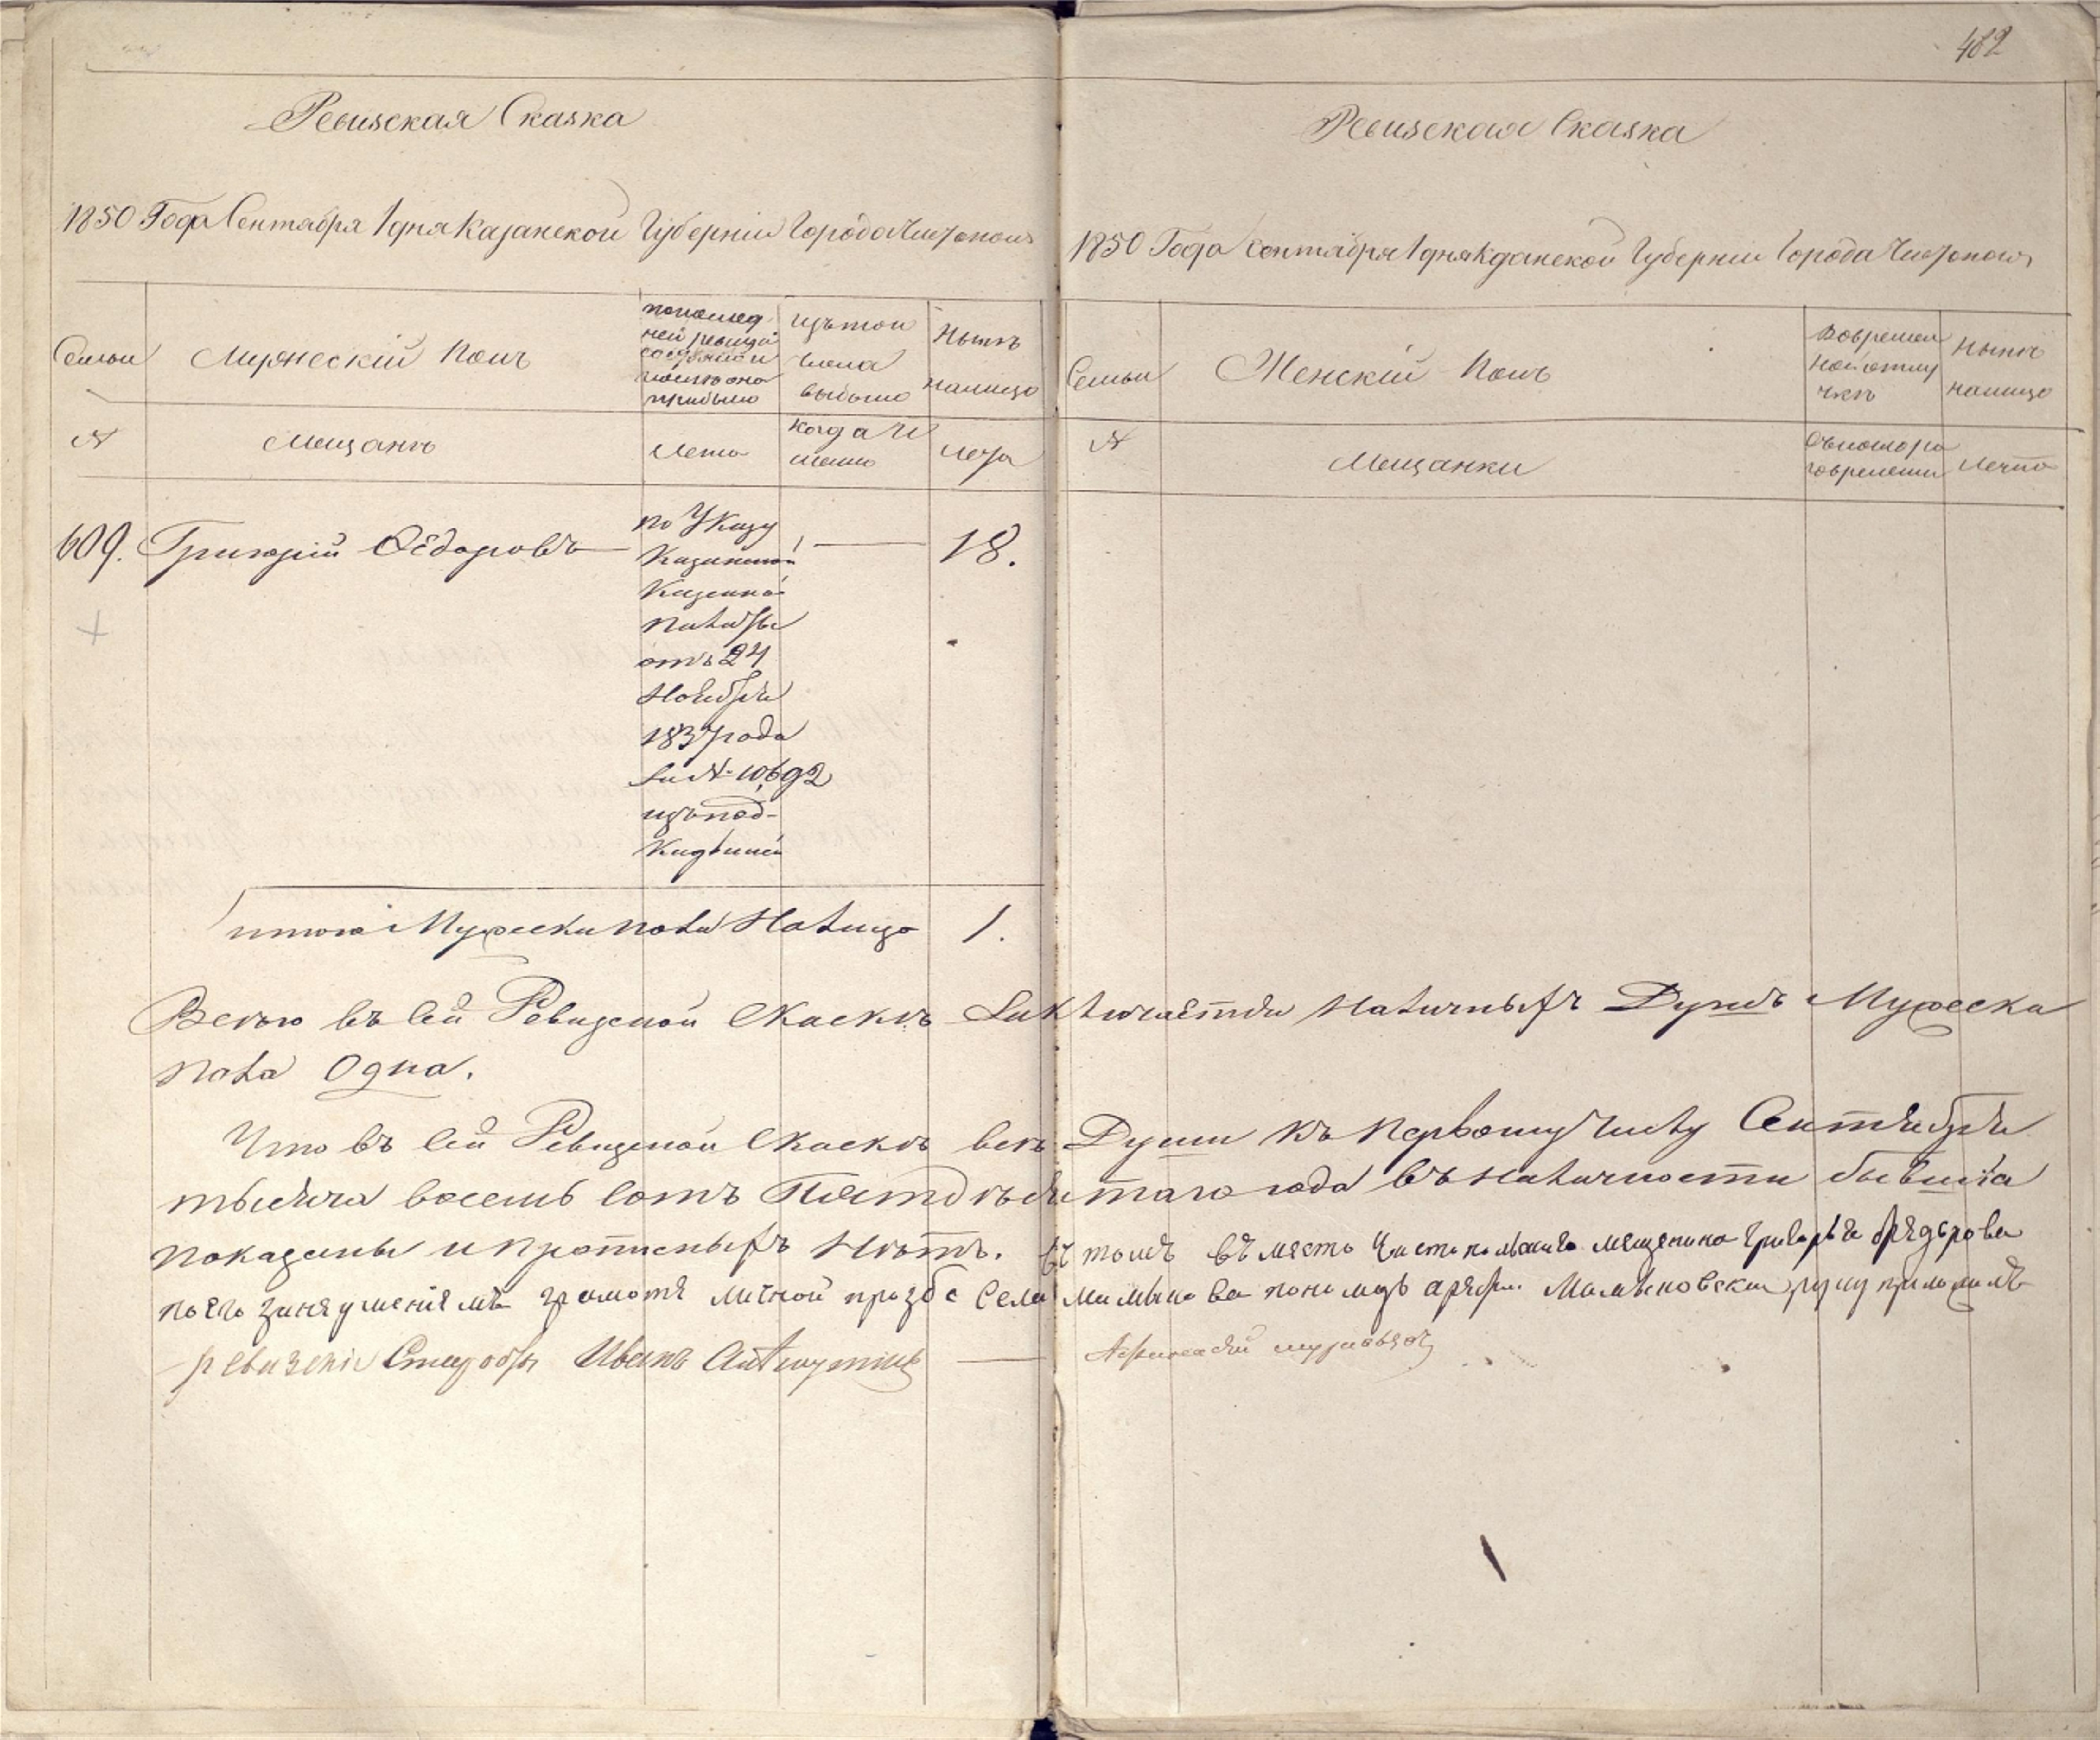 482
Ревизская Сказка
1850 Года Сентября 1 дня Казанской Губернiи Города Чистополя
Семьи
Мужескiй полъ
по послед
ней ревизiи
состояло и
после оно
прибыло
Изъ тои
числа
выбыло
Нынѣ
налицо
№
Мещанъ
Лета
Когда И
менно
Лета
609. Григорiй Ѳёдоровъ 18.
по Указу
Казанской
Казенной
Палаты
отъ 24
Ноября
1837 года
За № 10692
изъ под-
кидышей
итого Мужеска пола На лицо 1.
Ревизская Сказка
1850 Года Сентября 1 дня Казанской Губернiи Города Чистополя
Семьи
Женскiй Полъ
Во времен
ной отлу
чкѣ
Нынѣ
налицо
№
Мещанки
Съ котора
го времени
Лета
Всего въ сей Ревизской Сказкѣ Заключается Наличныхъ Душъ Мужеска
пола Одна.
Что въ сей Ревизской Сказкѣ всѣ Души къ Первому Числу Сентября
тысяча восемь сотъ Пятдѣсятаго года въ наличности бывшiя
показаны и прописныхъ Нѣтъ. въ томъ въ место Чистопольскаго мещенина Григорья Фядърова
по его занеуменiемъ грамоте личной прозбе Села
руку приложилъ
ревизскiй Иванъ